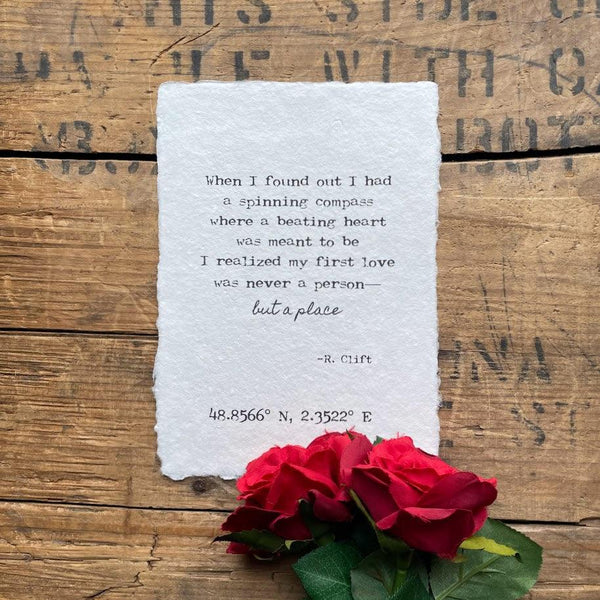 WITH CA
When I found out I had
a spinning compass
where a beating heart
was meant to be
I realized my first love
was never a person—
but a place
-R. Clift
48.8566° N, 2.3522° E